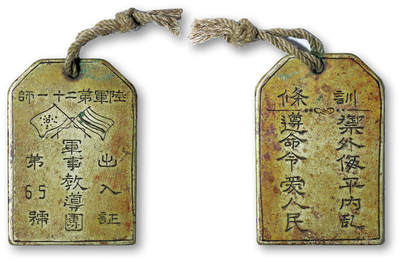 陸軍第二十一師
出入証
軍事教導團
第65號
訓條
禦外侮平内乱
遵命令愛人民